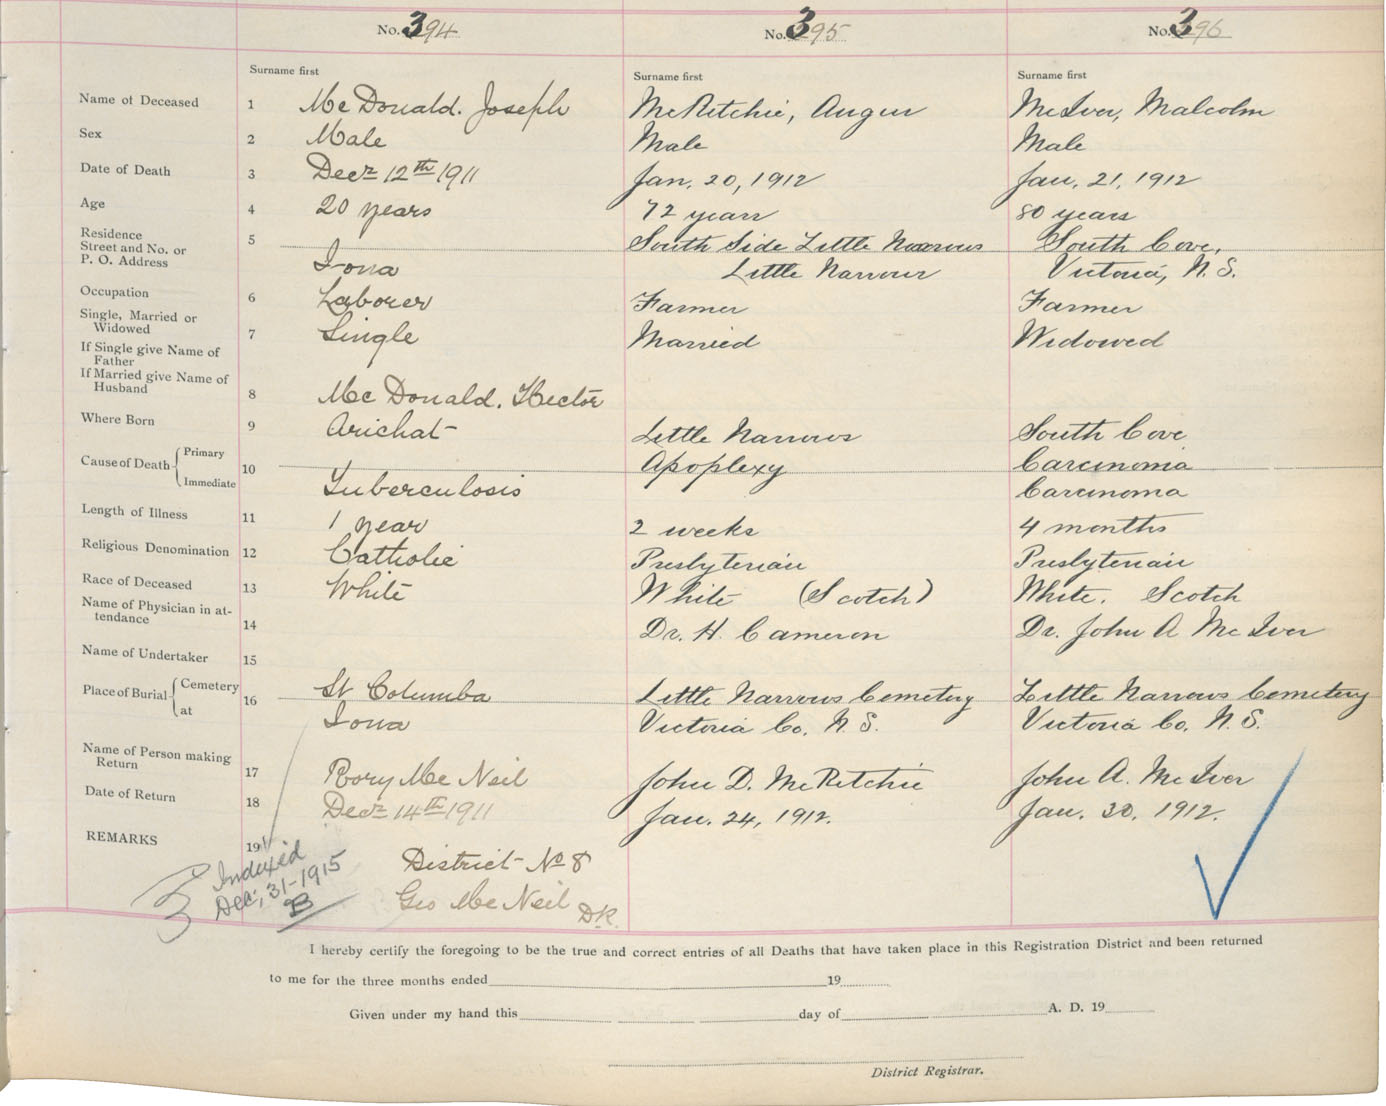 No. 394 No. 395 No. 396
Surname first Surname first Surname first
Name of Deceased 1 McDonald. Joseph McRitchie, Angus McIver, Malcolm
Sex 2 Male Male Male
Date of Death 3 Decr 12th 1911 Jan. 20, 1912 Jan. 21, 1912
Age 4 20 years 72 years 80 years
Residence
Street and No. or 5 South Side Little Narrows South Cove,
P. O. Address Iona Little Narrows Victoria, N. S.
Occupation 6 Laborer Farmer Farmer
Single, Married or
Widowed 7 Single Married Widowed
If Single give Name of
Father
If Married give Name of
Husband 8 McDonald. Hector
Where Born 9 Arichat Little Narrows South Cove
Cause of Death Primary 10 Apoplexy Carcinoma
Immediate Tuberculosis Carcinoma
Length of Illness 11 1 year 2 weeks 4 months
Religious Denomination 12 Catholic Presbyterian Presbyterian
Race of Deceased 13 White White (Scotch) White. Scotch
Name of Physician in at-
tendance 14 Dr. H. Cameron Dr. John A McIver
Name of Undertaker 15
Place of Burial Cemetery 16 St Columba Little Narrows Cemetery Little Narrows Cemetery
at Iona Victoria Co. N. S. Victoria Co. N. S.
Name of Person making
Return 17 Rory McNeil John D. McRitchie John A. McIver
Date of Return 18 Decr 14th 1911 Jan. 24, 1912. Jan. 30, 1912.
REMARKS 19
Indexed District No 8
Dec. 31-1915 Geo McNeil D.R.
B
I hereby certify the foregoing to be the true and correct entries of all Deaths that have taken place in this Registration District and been returned
to me for the three months ended 19
Given under my hand this day of A. D. 19
District Registrar.